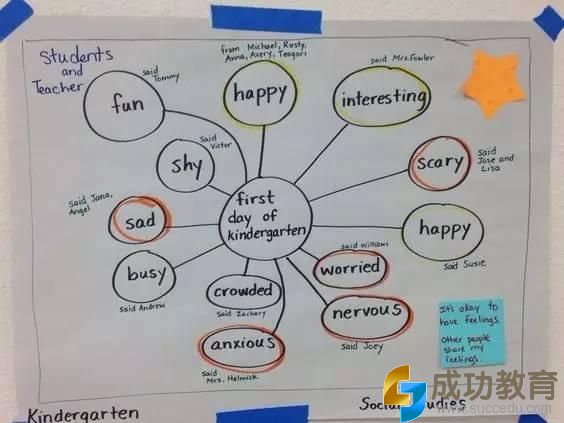 Students
and
Teacher
said
Tommy
fun
from Michael, Rusty,
Anna, Avery, Teagan
happy
said Mrs. Fowler
interesting
said
Victor
shy
scary
said
Jose and
Lisa
said Jana,
Angel
sad
first
day of
kindergarten
happy
said Susie
busy
said Andrew
crowded
said Zachary
said William
worried
nervous
said Joey
anxious
said
Mrs. Helmick
It's okay to
have feelings.
Other people
share my
feelings.
Kindergarten
Social Studies
成功教育
www.succedu.com